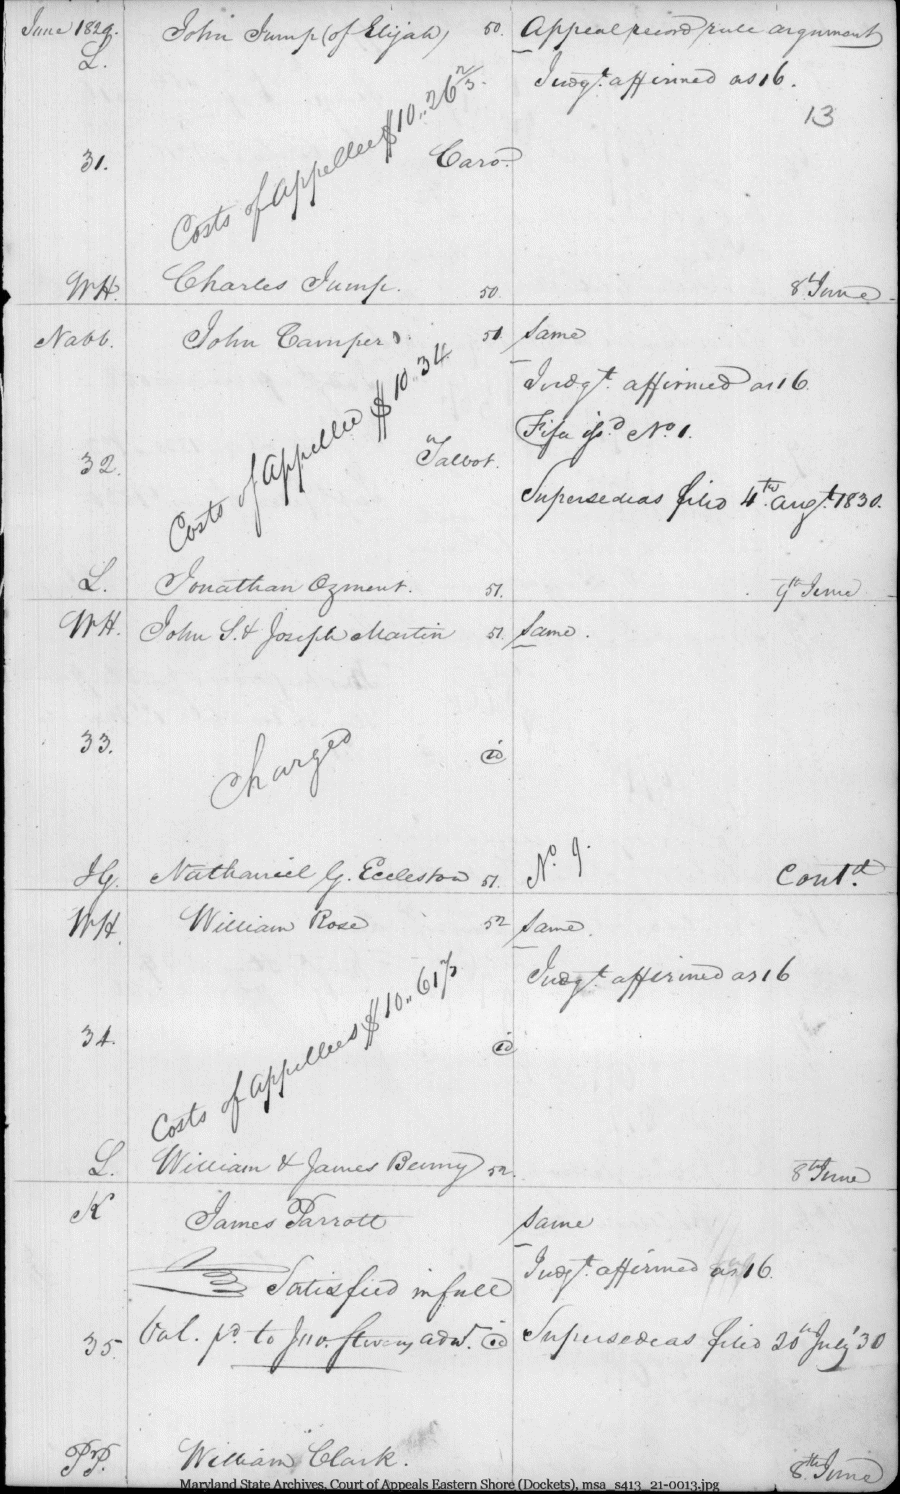 June 1829. John Jump (of Elijah) 50. Appeal record rule argument
L. Judgt. affirmed as 16.
13
Costs of Appellee $10..26 2/3.
31. Caro.
WH. Charles Jump. 50. 8th June
Nabb. John Camper 51 same
Judgt. affirmed as 16.
Fifa isd. No. 1.
Costs of Appellee $10..34
32. Talbot.
Supersedeas filed 4th. Augt. 1830.
L. Jonathan Ozment. 51. 9th June
WH. John S. & Joseph Martin 51 same.
33. Charged id
JG. Nathaniel G. Eccleston 51. No. 9. Contd.
WH. William Rose 52 same.
Judgt. affirmed as 16
Costs of Appellees $10..61 1/3
34. id
L. William & James Benny 52. 8th June
K James Parrott same
Judgt. affirmed as 16.
Satisfied in full
35. bal. pd. to Jno. Stevens adm. id Supersedeas filed 20th July '30
PrP. William Clark. 8th June
Maryland State Archives, Court of Appeals Eastern Shore (Dockets), msa_s413_21-0013.jpg